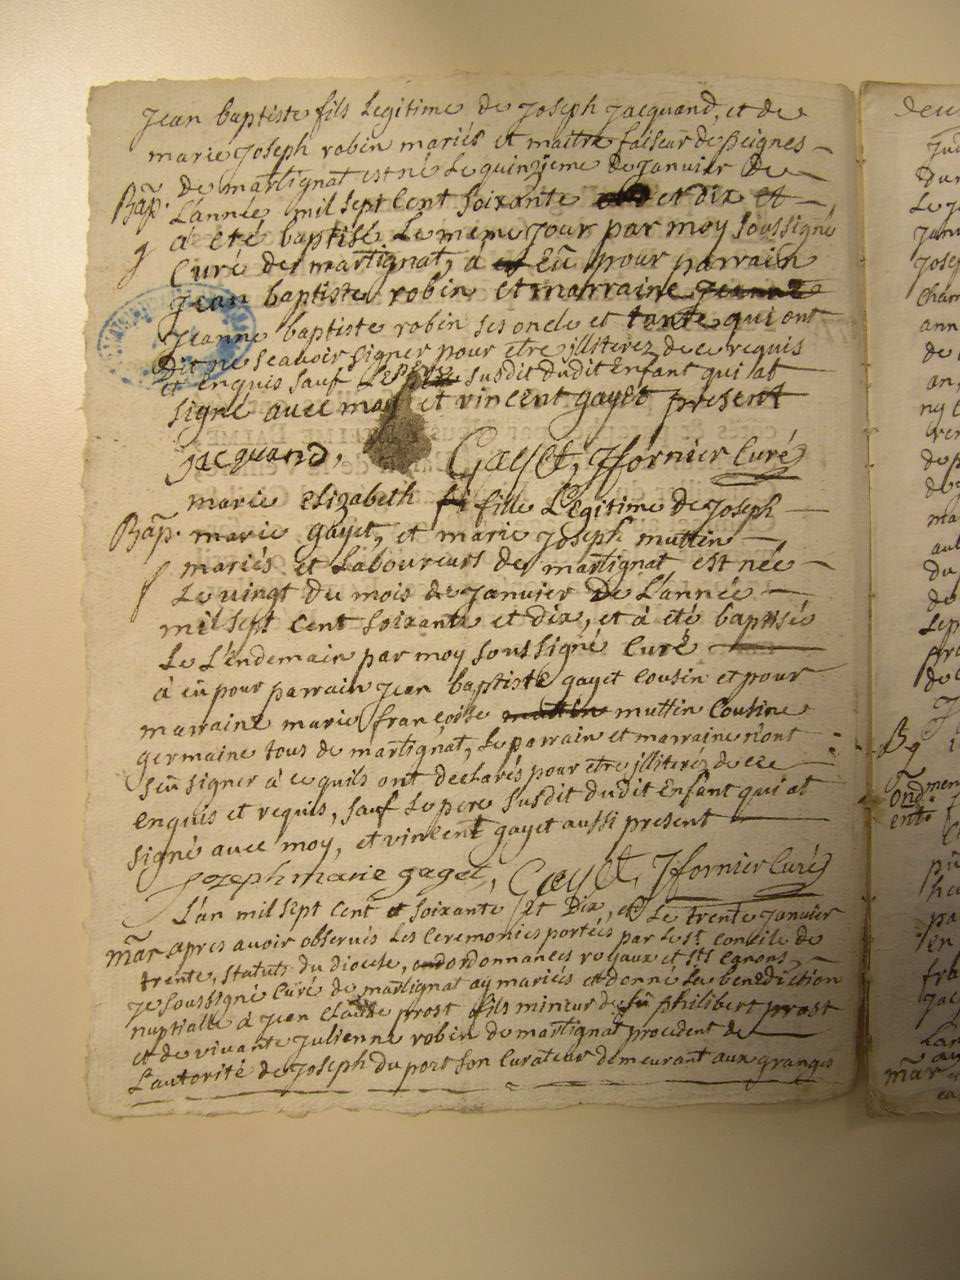 Jean baptiste fils Legitime de Joseph Jacquand, et de
marie Joseph robin mariés et maitre faiseur de peignes
de martignat est né Le quinzieme de Janvier de
Bap. L'année mil sept cent soixante et dix et
9 à été baptisé Le meme Jour par moy soussigné
Curé de martignat, a eû pour parrain
jean baptiste robin et marraine jeanne
Jeanne baptiste robin ses oncle et tante qui ont
dit ne scavoir signer pour etre jlliterez de ce requis
et enquis sauf Le pere susdit dudit Enfant qui at
signé avec moy et vincent gayet present
jacquand, Gayet, Jfornier Curé
marie elizabeth fi fille Legitime de Joseph
Bap. marie gayet, et marie Joseph muttin
f mariés et Laboureurs de martignat est née
Le vingt du mois de Janvier de L'année
mil sept cent soixante et dix, et à été baptisée
Le L'endemain par moy soussigné Curé
à eû pour parrain jean baptiste gayet Cousin et pour
marraine marie françoise muttin muttin Cousine
germaine tous de martignat, Le parrain et marraine n'ont
sçû signer à ce quils ont declarés pour etre jlliteréz de ce
enquis et requis, sauf Le pere susdit dudit Enfant qui at
signé avec moy, et vincent gayet aussi present
Jozeph marie gaget, Gayet, Jfornier Curé
L'an mil sept Cent et soixante et Dix, et Le trente Janvier
mar apres avoir observés Les Ceremonies portées par Le st Concile de
trente, statuts du diocese, ordonnances royaux et sts Canons,
je soussigné Curé de martignat ay mariés et donné La benediction
nuptialle à Jean Claude prost fils mineur de fû philibert prost
et de vivante Julienne robin de martignat procedent de
L'autorité de Joseph du port son Curateur demeurant aux granges
deu
Du
Le J
Janv
Josep
Cham
ann
de
an,
ny
de p
de
ma
au
du
de
Lep
de
B 9
ond
ent
pa
en
mar